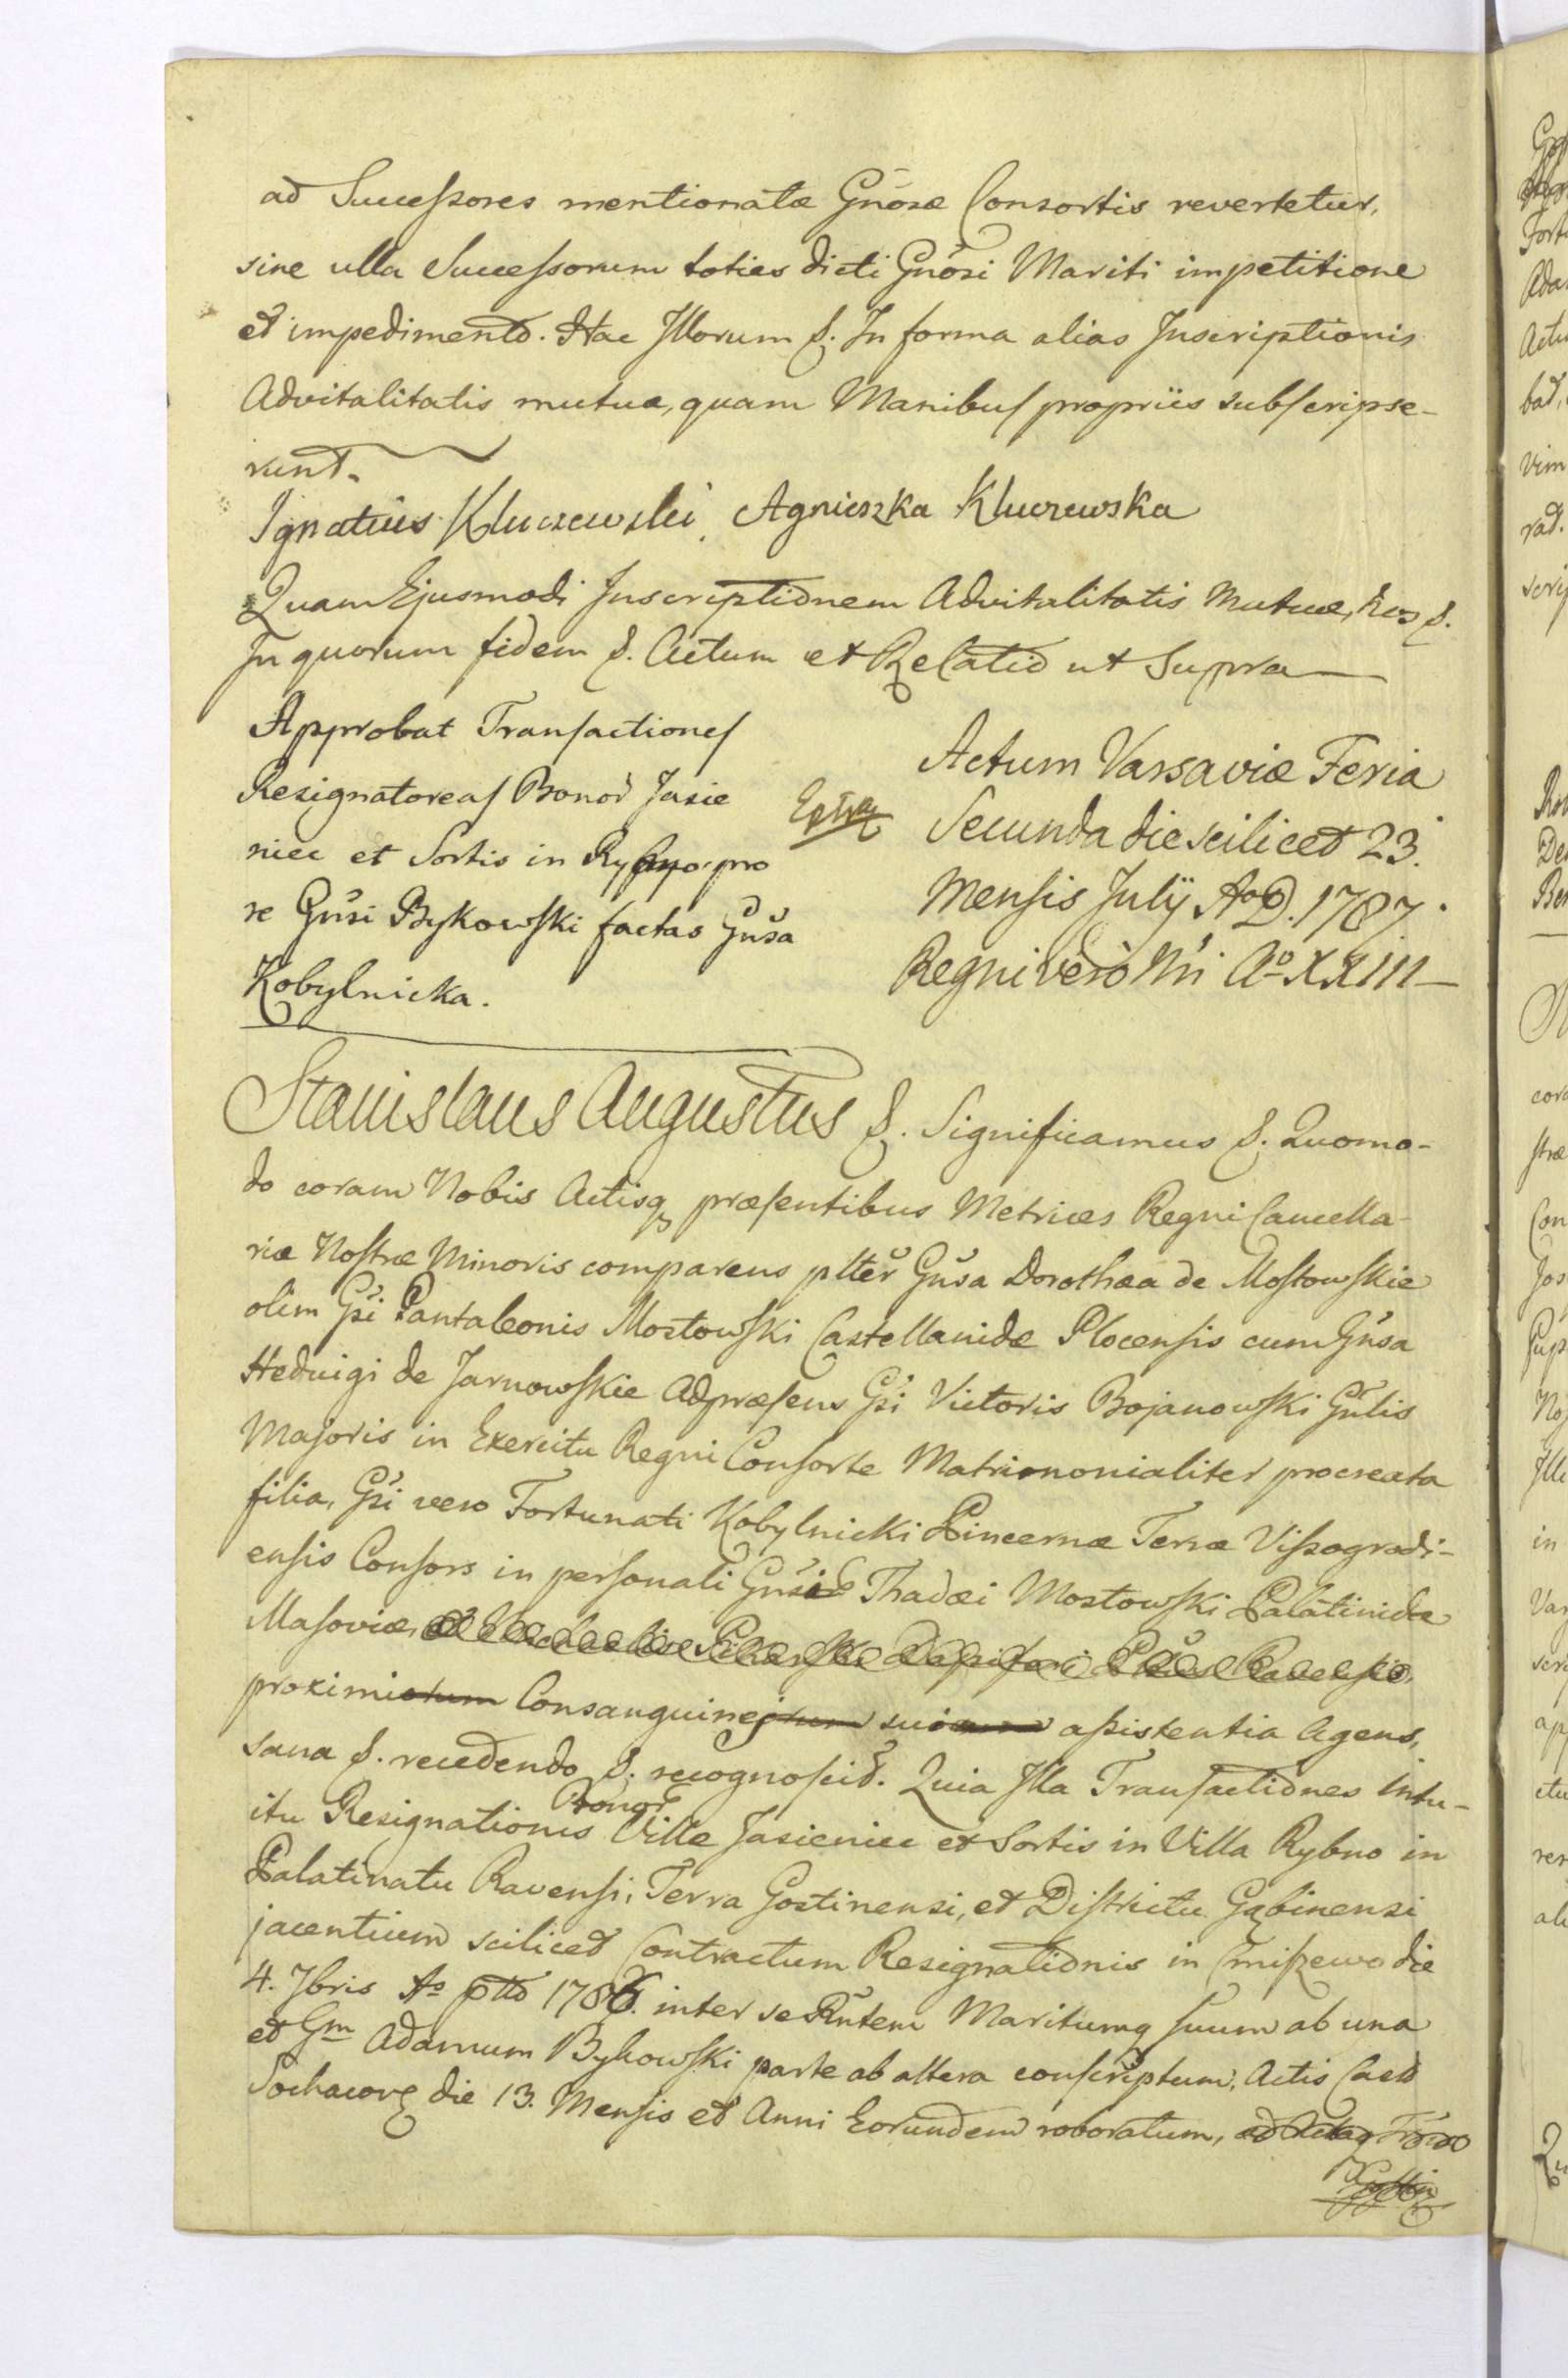 ad Successores mentionatæ Gnosæ Consortis revertetur,
sine ulla Successorum toties dicti Gnosi Mariti impetitione
et impedimento. Hac Illorum &. In forma alias Inscriptionis
Advitalitatis mutuæ, quam Manibus propriis subscripse-
runt.
Ignatius Kluczewski, Agnieszka Kluczewska
Quam Ejusmodi Inscriptionem Advitalitatis Mutuæ, &.
In quorum fidem &. Actum et Relatio ut Supra
Approbat Transactiones
Resignatoreas Bonor Jasie
niec et Sortis in Rybno pro
re Gnsi Bykowski factas Gnsa
Kobylnicka.
Actum Varsaviæ Feria
Secunda die scilicet 23.
Mensis Julÿ Ao D. 1787.
Regni vero Nri Ao XXIII
Stanislaus Augustus &. Significamus &. Quomo-
do coram Nobis Actisq præsentibus Metrices Regni Cancella-
riæ Nostræ Minoris comparens plter Gnsa Dorothæa de Mostowskie
olim Gsi Pantaleonis Mostowski Castellanidæ Plocensis cum Gnsa
Heduigi de Jarnowskie Adpræsens Gsi Victoris Bojanowski Gnlis
Majoris in Exercitu Regni Consorte Matrimonialiter procreata
filia, Gsi vero Fortunati Kobylnicki Pincernæ Terræ Vissogrodi-
ensis Consors in personali Gnsi Thadæi Mostowski Palatinidæ
Masoviæ,
proximiorum Consanguineorum suorum assistentia Agens,
sana &. recedendo &. recognoscit. Quia Illa Transactiones Intu-
itu Resignationis Bonor Villæ Jasieniec et Sortis in Villa Rybno in
Palatinatu Ravensi, Terra Gostinensi, et Districtu Gąbinensi
jacentium scilicet Contractum Resignationis in Cmiszewo die
4. 7bris Ao ptto 1786. inter se Rntem Maritumq suum ab una
et Gm Adamum Bykowski parte ab altera conscriptum, Actis Cast
Sochacov die 13. Mensis et Anni Eorundem roboratum, ad Actaq